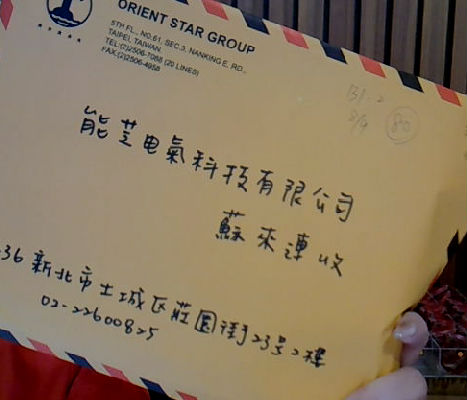 ORIENT STAR GROUP
5TH FL., NO.61, SEC.3, NANKING E. RD.,
TAIPEI, TAIWAN.
TEL:(2)2506-7066 (20 LINES)
FAX:(2)2506-4958
80
能芝电氣科技有限公司
蘇來連收
36 新北市土城区莊園街23号2樓
02-22600825